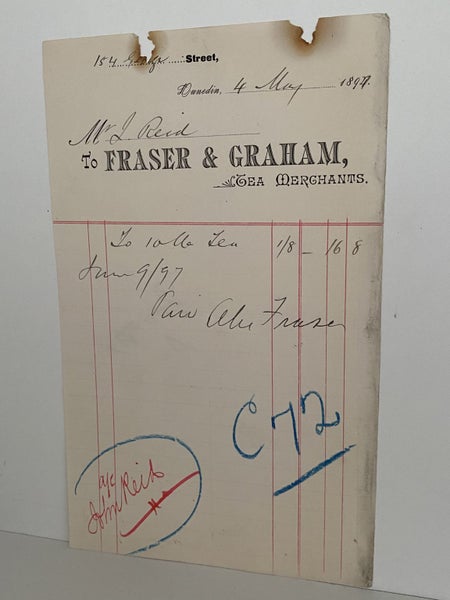 154 George Street,
Dunedin, 4 May 1897.
Mr J Reid
To FRASER & GRAHAM,
TEA MERCHANTS.
To 10 lb Tea 1/8 — 16 8
June 9/97
Paid Alex Fraser
C 72
a/c
John Reid